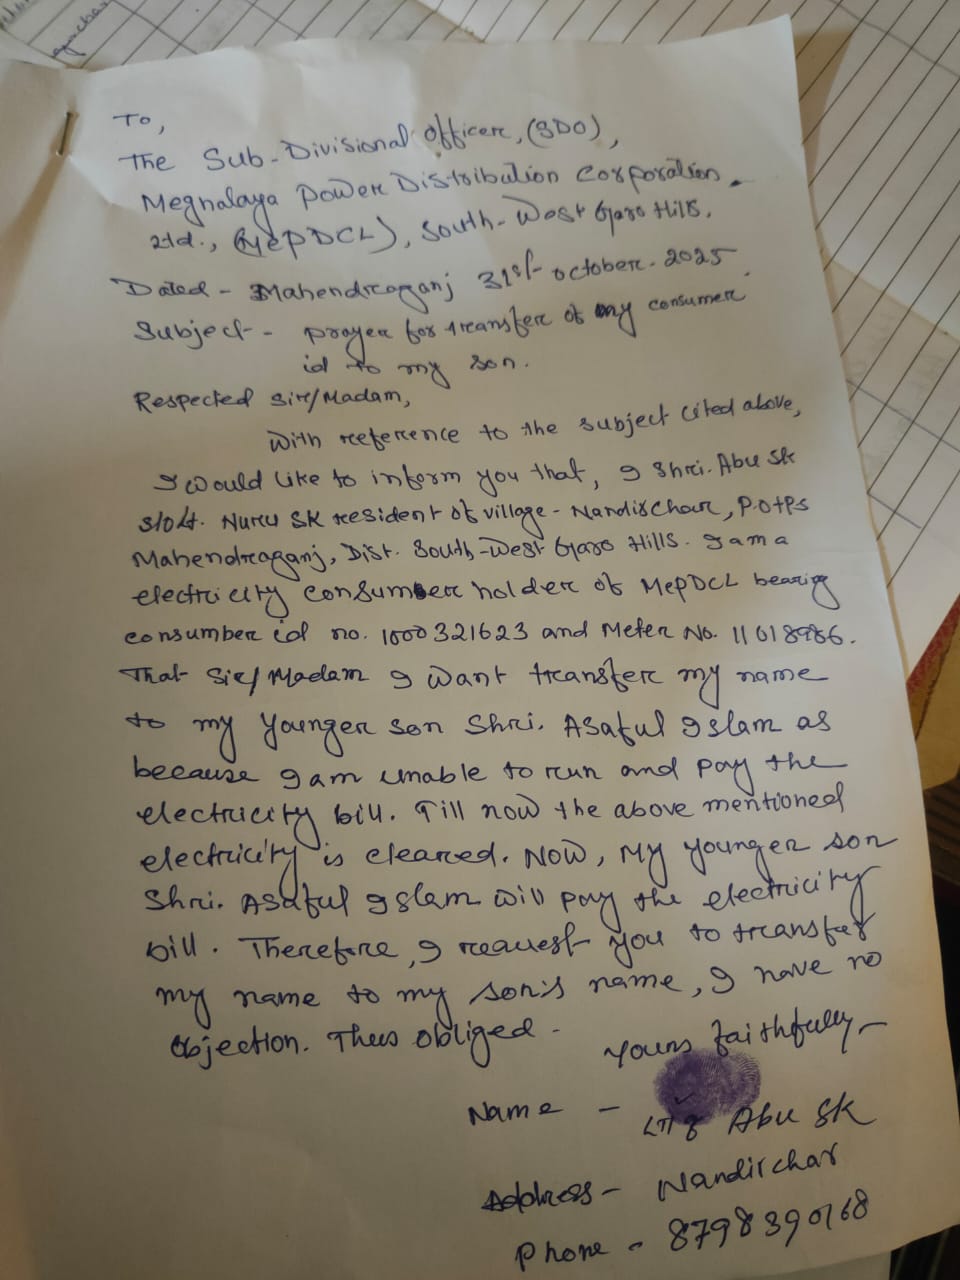 To,
The Sub-Divisional Officer, (SDO),
Meghalaya Power Distribution Corporation.
Ltd., (MePDCL), South-West Garo Hills.
Dated - Mahendraganj 31st October. 2025.
Subject - prayer for transfer of my consumer
id to my son.
Respected Sir/Madam,
With reference to the subject cited above,
I would like to inform you that, I Shri. Abu Sk
S/o Lt. Nuru SK resident of village - Nandirchar, P.O+PS
Mahendraganj, Dist. South-West Garo Hills. I am a
electricity consumber holder of MePDCL bearing
consumber id no. 1000321623 and Meter No. 11018986.
That Sir/Madam I want transfer my name
to my younger son Shri. Asaful Islam as
because I am unable to run and pay the
electricity bill. Till now the above mentioned
electricity is cleared. Now, my younger son
Shri. Asaful Islam will pay the electricity
bill. Therefore, I request you to transfer
my name to my son's name, I have no
objection. Thus obliged.
Yours faithfully
Name - Abu SK
Address - Nandirchar
Phone - 8798390168